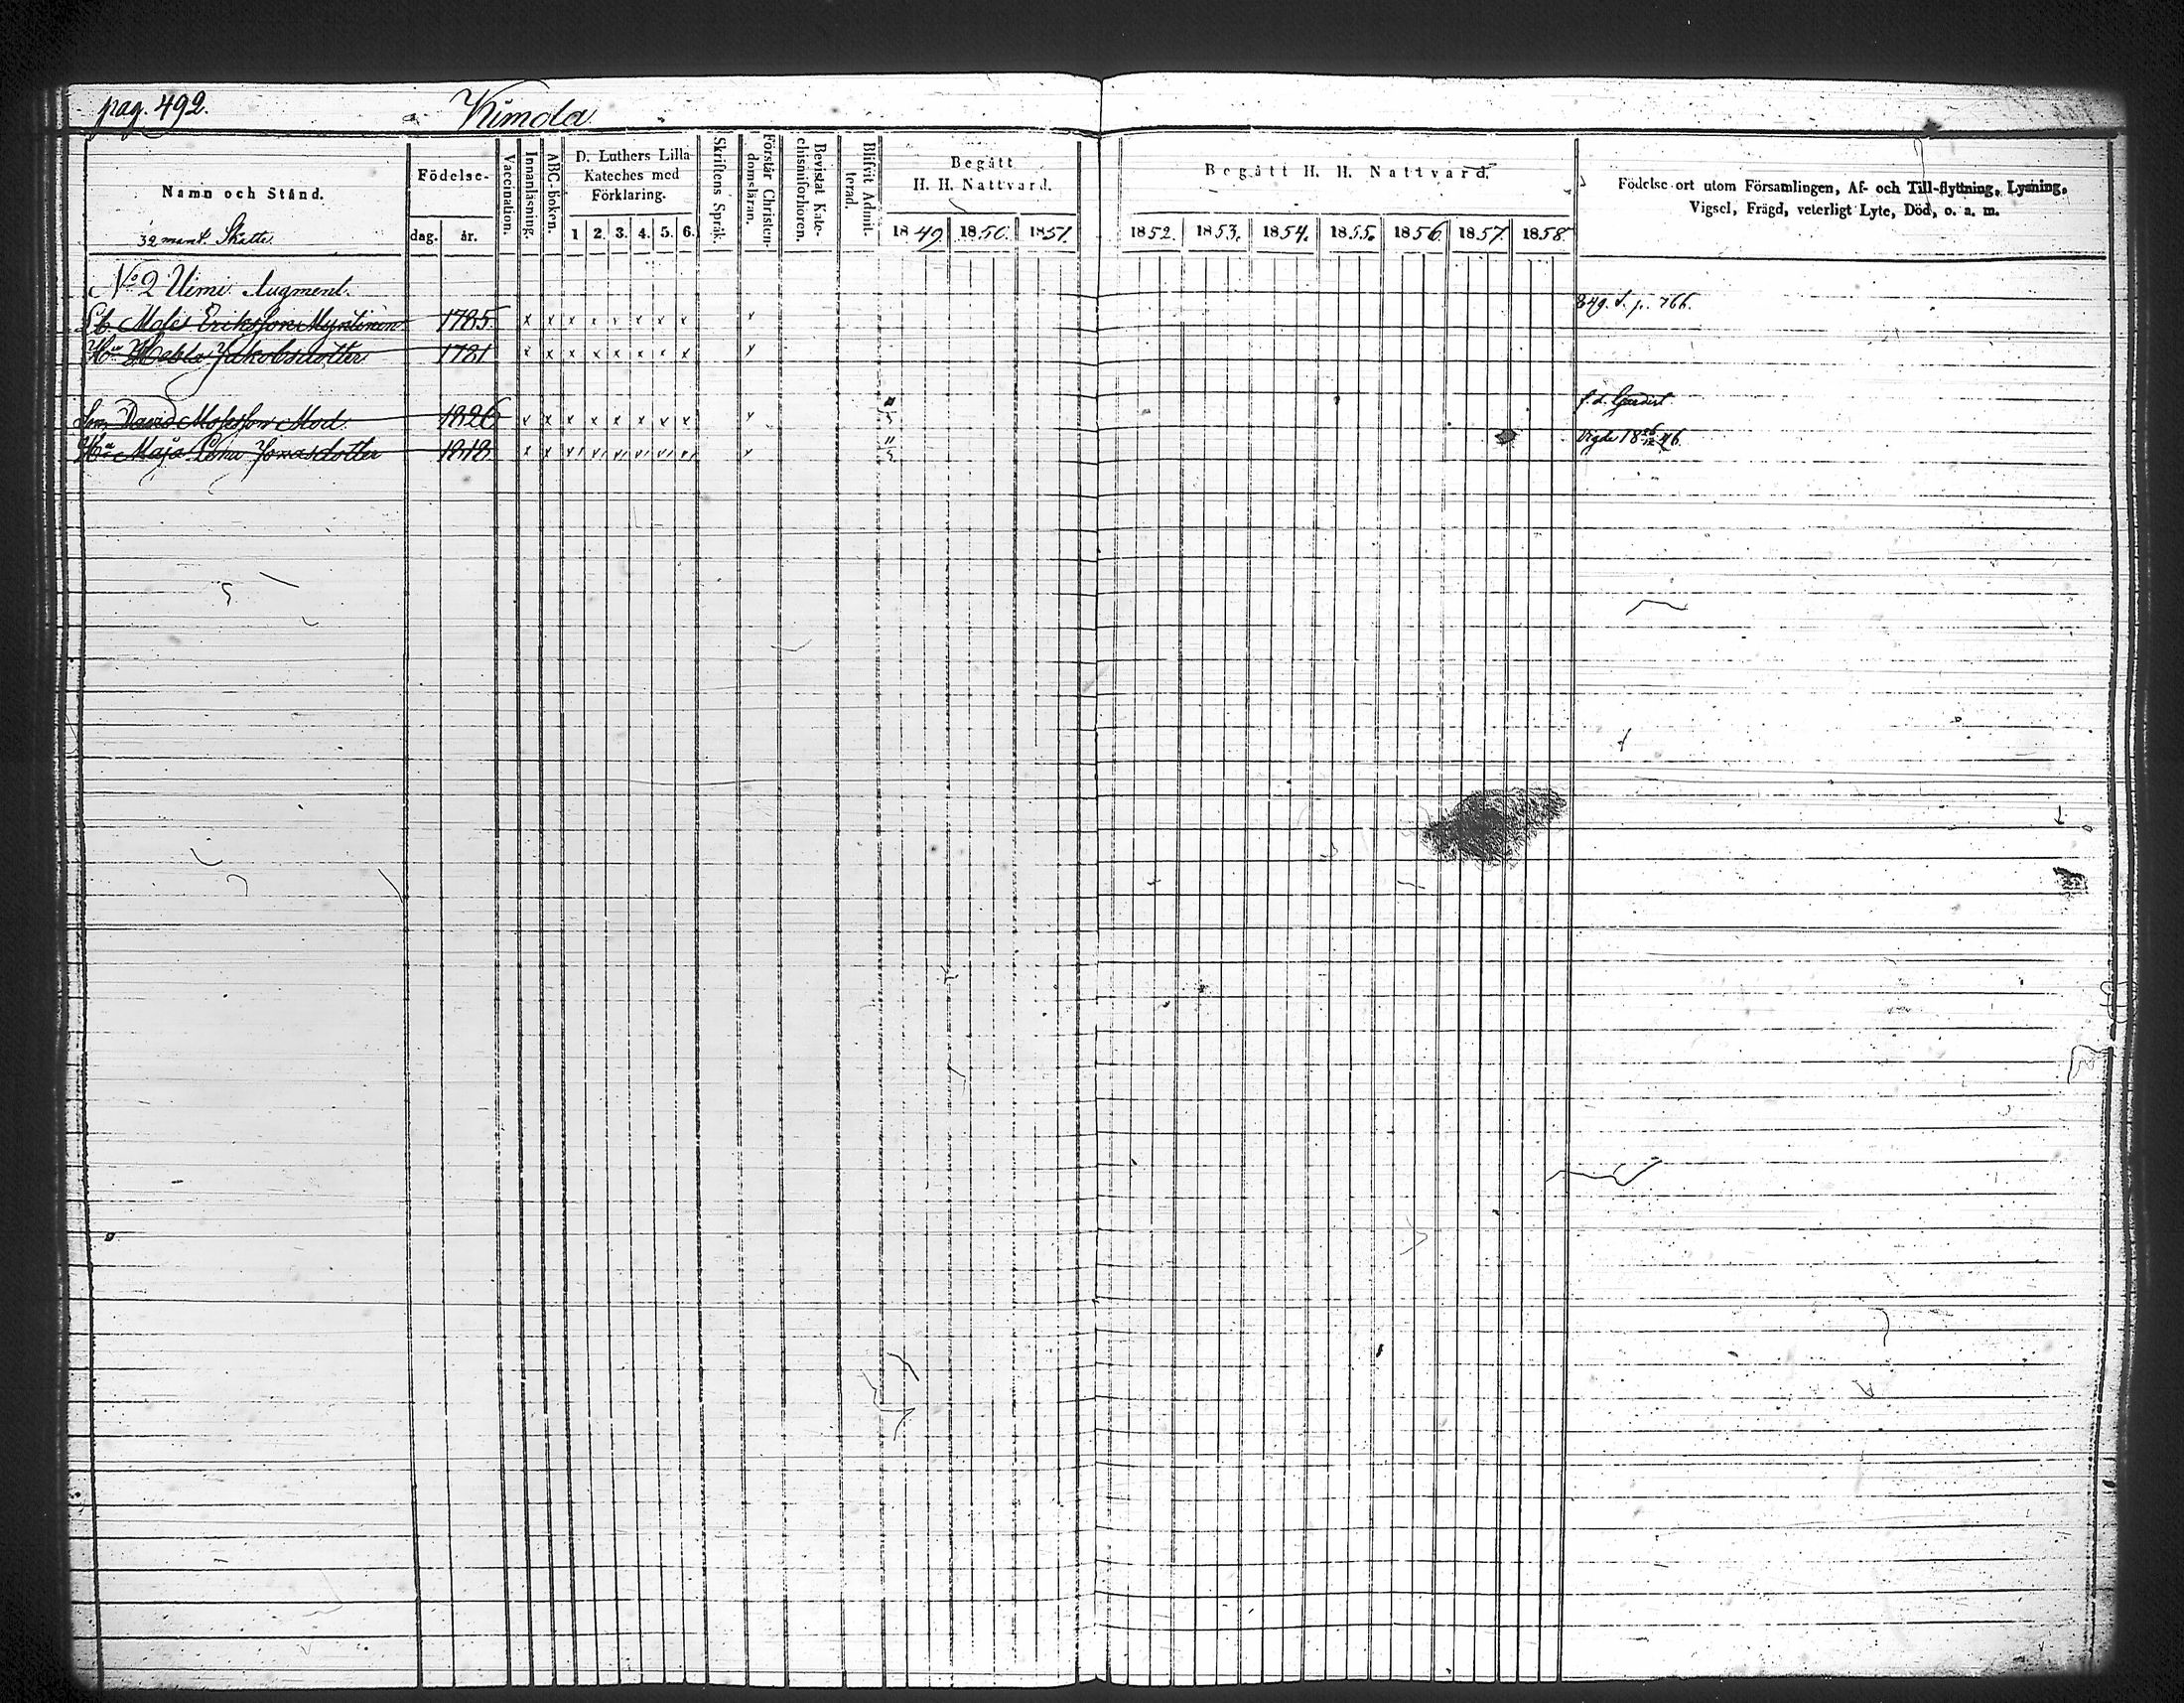 pag. 492.
Kimola
Namn och Stånd.
32 mant. Skatte.
Födelse-
dag. år.
Vaccination.
Innanläsning.
ABC-boken.
D. Luthers Lilla
Kateches med
Förklaring.
1 2. 3. 4. 5. 6.
Skriftens Språk.
Förstår Christen-
domsläran.
Bevistat Kate-
chismiförhören.
Blifvit Admit-
terad.
Begått
H. H. Nattvard.
1849. 1850. 1851.
Begått H. H. Nattvard.
1852. 1853. 1854. 1855. 1856. 1857. 1858.
Födelse-ort utom Församlingen, Af- och Till-flyttning, Lysning,
Vigsel, Frägd, veterligt Lyte, Död, o. a. m.
No 2 Uimi Augment.
Eriksson 1785. x x x x x x x x x
Hu Jakobsdotter 1781 x x x x x x x x x
Son David Mod. 1826 x x x x x x x x x
Hu Maja Lena Jonasdotter 1818. x x
p. 766.
f. d.
Vigde 18